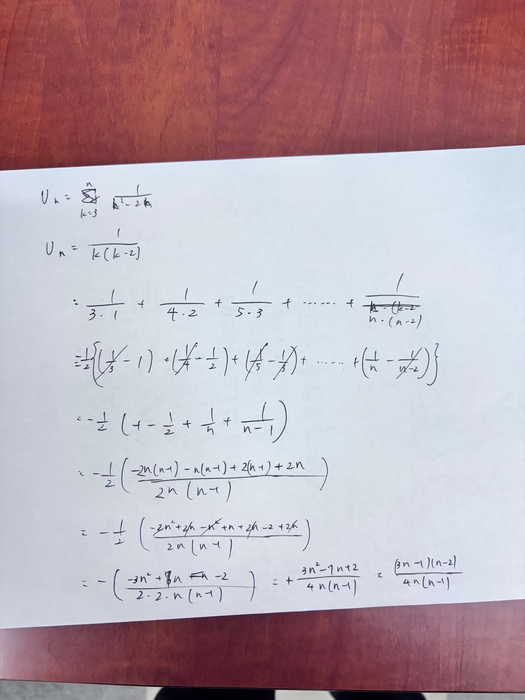 Uₙ = Σ_{k=3}^{n} 1/(k²-2k)
Uₙ = 1/(k(k-2))
= 1/(3·1) + 1/(4·2) + 1/(5·3) + ...... + 1/(n·(n-2))
= -1/2 {(1/3 - 1) + (1/4 - 1/2) + (1/5 - 1/3) + ...... + (1/n - 1/(n-2))}
= -1/2 (-1 - 1/2 + 1/n + 1/(n-1))
= -1/2 ((-2n(n-1) - n(n-1) + 2(n-1) + 2n)/(2n(n-1)))
= -1/2 ((-2n²+2n-n²+n+2n-2+2n)/(2n(n-1)))
= -((-3n²+7n-2)/(2·2·n(n-1))) = + (3n²-7n+2)/(4n(n-1)) = (3n-1)(n-2)/(4n(n-1))